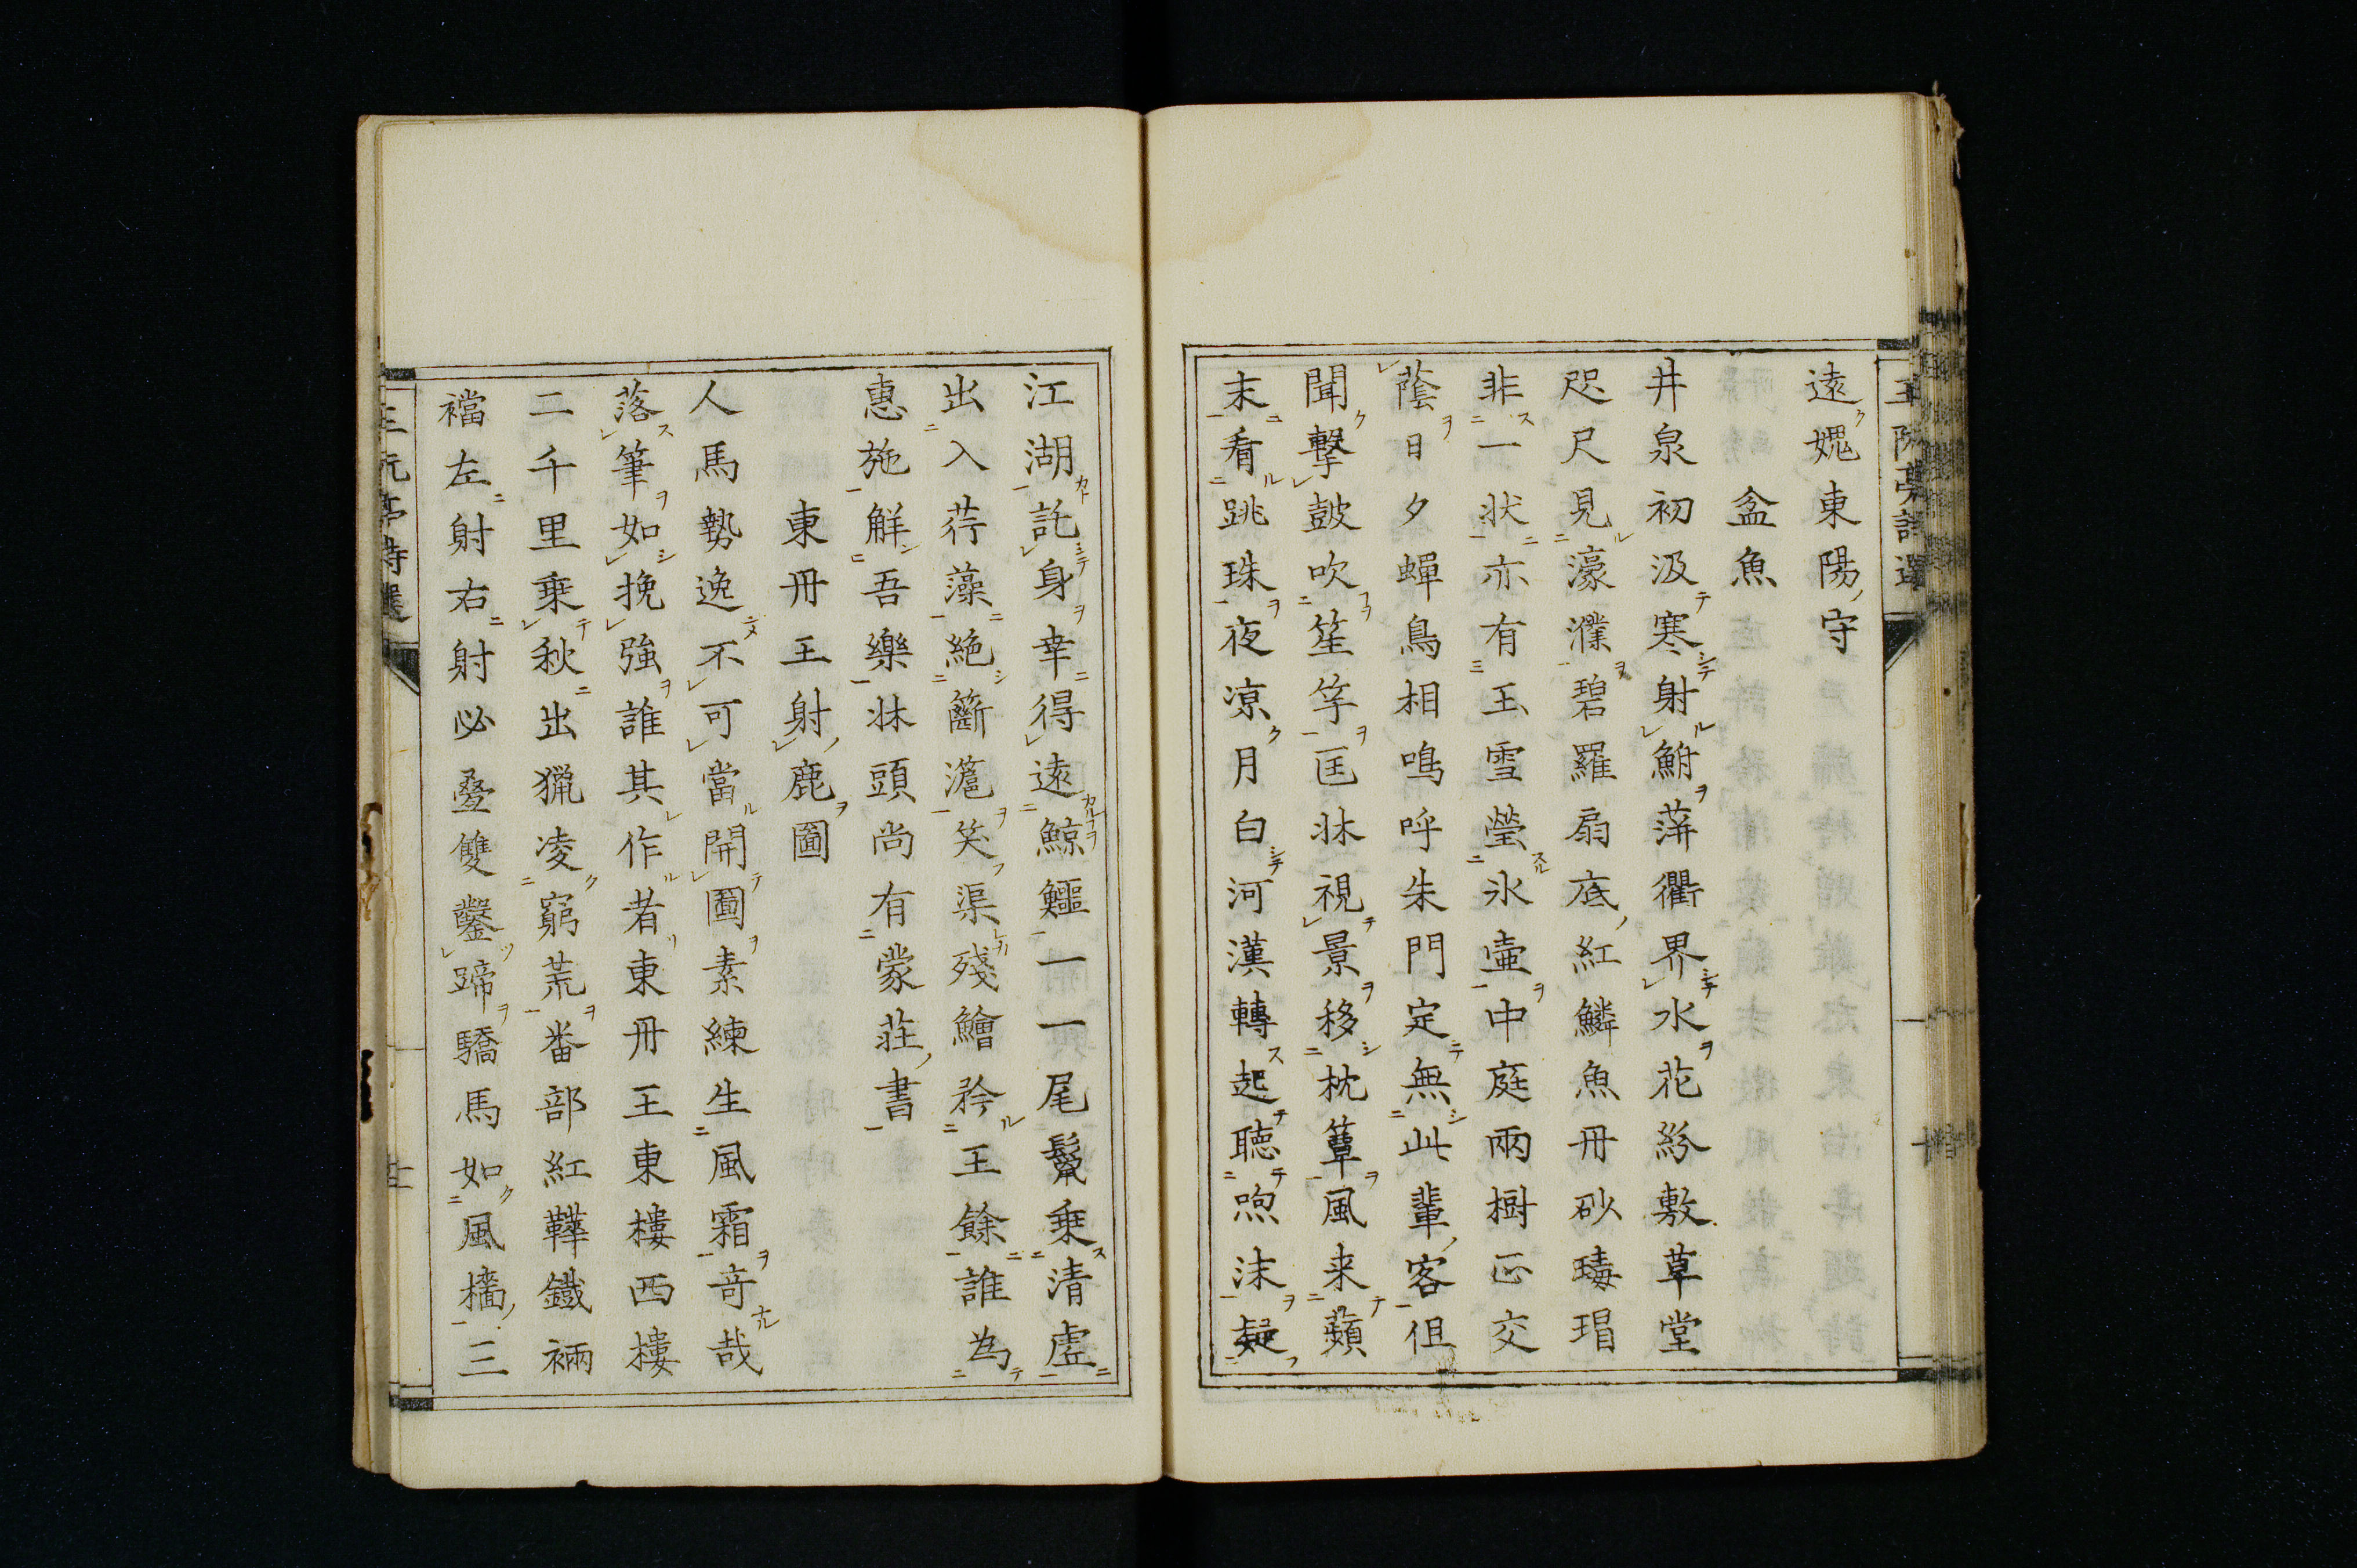 遠媿東陽守
盆魚
井泉初汲寒射鮒萍衢界水花紛敷草堂
咫尺見濠濮碧羅扇底紅鱗魚丹砂瑇瑁
非一狀亦有玉雪瑩氷壷中庭兩樹正交
蔭日夕蟬鳥相鳴呼朱門定無此輩客但
聞擊鼓吹笙竽匡牀視景移枕簟風来蘋
末看跳珠夜凉月白河漢轉起聴喣沫疑
江湖託身幸得遠鯨鱷一一尾鬣乗清虛
出入荇藻絶籪滬笑渠殘鱠矜王餘誰為
惠施解吾樂牀頭尚有蒙莊書
東丹王射鹿圖
人馬勢逸不可當開圖素練生風霜竒哉
落筆如挽強誰其作者東丹王東樓西樓
二千里乗秋出獵凌窮荒畨部紅鞾鐵裲
襠左射右射必疊雙鑿蹄驕馬如風檣三